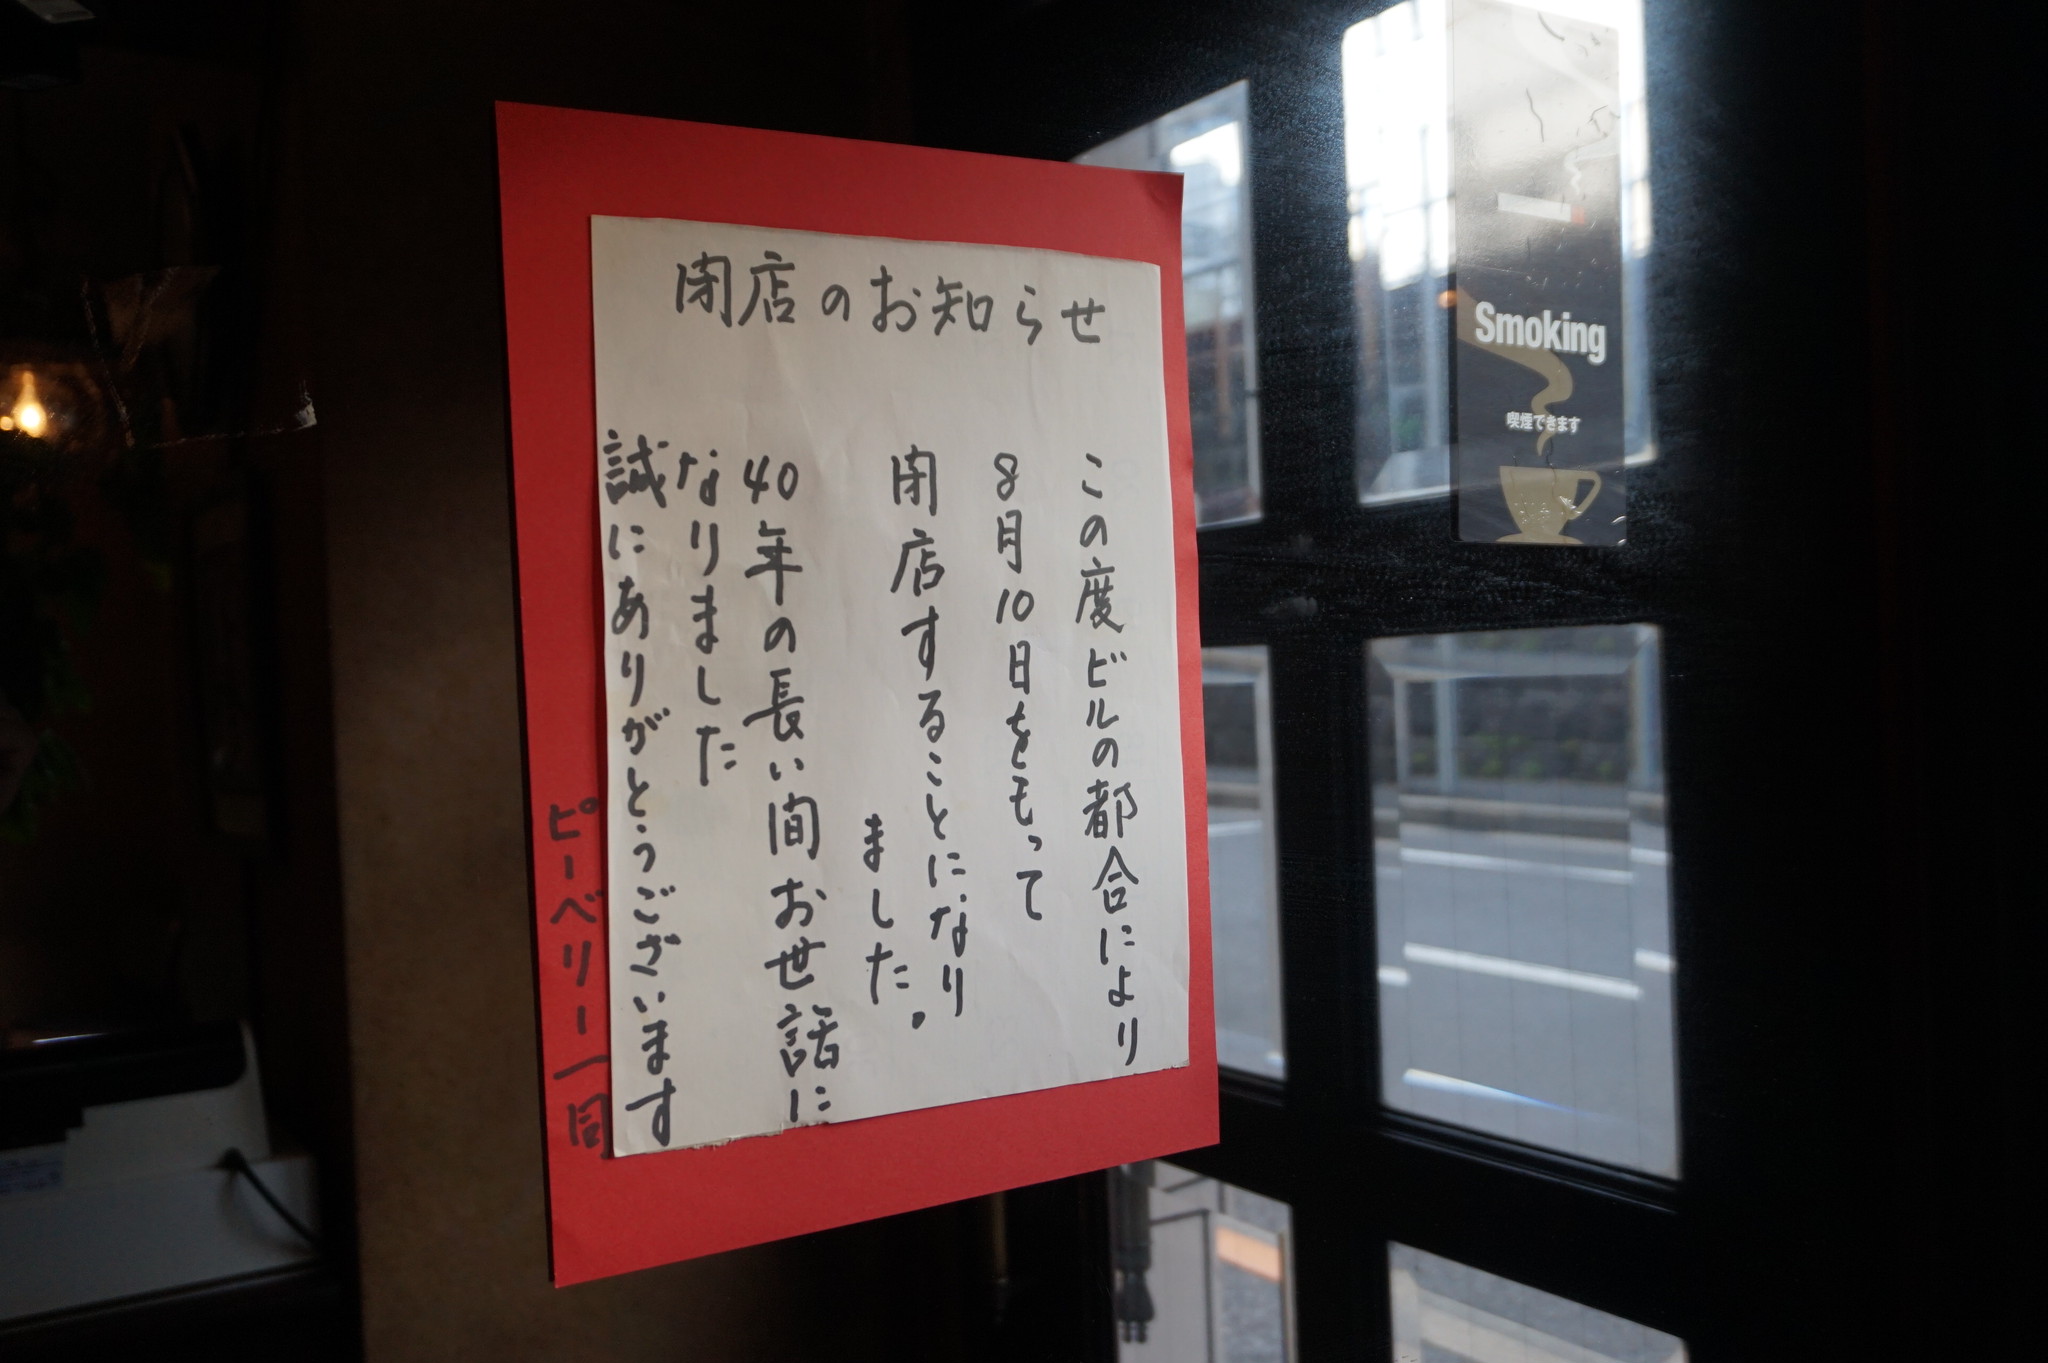 閉店のお知らせ
この度ビルの都合により
8月10日をもって
閉店することになり
ました。
40年の長い間お世話に
なりました
誠にありがとうございます
ピーベリー一同
Smoking
喫煙できます